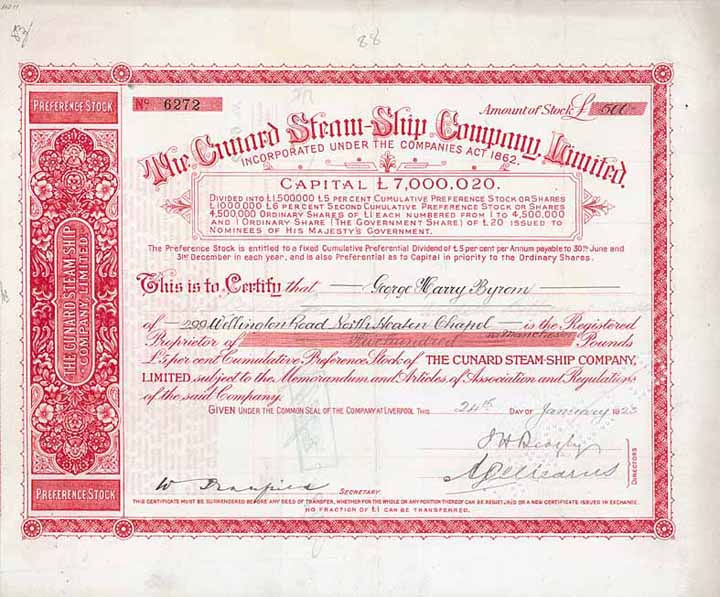 88
PREFERENCE STOCK
Nº 6272
Amount of Stock £ 500
The Cunard Steam-Ship Company, Limited.
INCORPORATED UNDER THE COMPANIES ACT 1862.
CAPITAL £7,000,020.
DIVIDED INTO £1,500000 £5 PER CENT CUMULATIVE PREFERENCE STOCK OR SHARES
£1,000,000 £6 PER CENT SECOND CUMULATIVE PREFERENCE STOCK OR SHARES
4,500,000 ORDINARY SHARES OF £1 EACH NUMBERED FROM 1 TO 4,500,000
AND 1 ORDINARY SHARE (THE GOVERNMENT SHARE) OF £20 ISSUED TO
NOMINEES OF HIS MAJESTY'S GOVERNMENT.
The Preference Stock is entitled to a fixed Cumulative Preferential Dividend of £5 per cent per Annum payable to 30th June and
31st December in each year, and is also Preferential as to Capital in priority to the Ordinary Shares.
This is to Certify that George Harry Byrom
of 299 Wellington Road North Heaton Chapel is the Registered
nr Manchester
Proprietor of Five hundred Pounds
£5 per cent Cumulative Preference Stock of THE CUNARD STEAM-SHIP COMPANY,
LIMITED, subject to the Memorandum and Articles of Association and Regulations
of the said Company.
GIVEN UNDER THE COMMON SEAL OF THE COMPANY AT LIVERPOOL THIS 24th DAY OF January 1923
DIRECTORS
SECRETARY.
THIS CERTIFICATE MUST BE SURRENDERED BEFORE ANY DEED OF TRANSFER, WHETHER FOR THE WHOLE OR ANY PORTION THEREOF CAN BE REGISTERED OR A NEW CERTIFICATE ISSUED IN EXCHANGE.
NO FRACTION OF £1 CAN BE TRANSFERRED.
THE CUNARD STEAM-SHIP
COMPANY, LIMITED
PREFERENCE STOCK